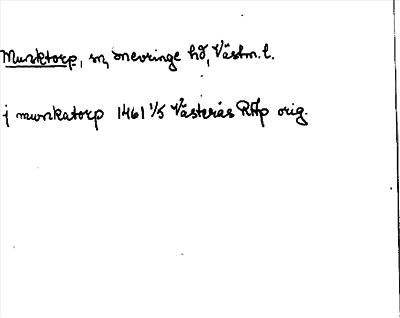 Munktorp, sn, Snevringe hd, Västm. l.
j munkatorp 1461 1/5 Västerås RAp orig.